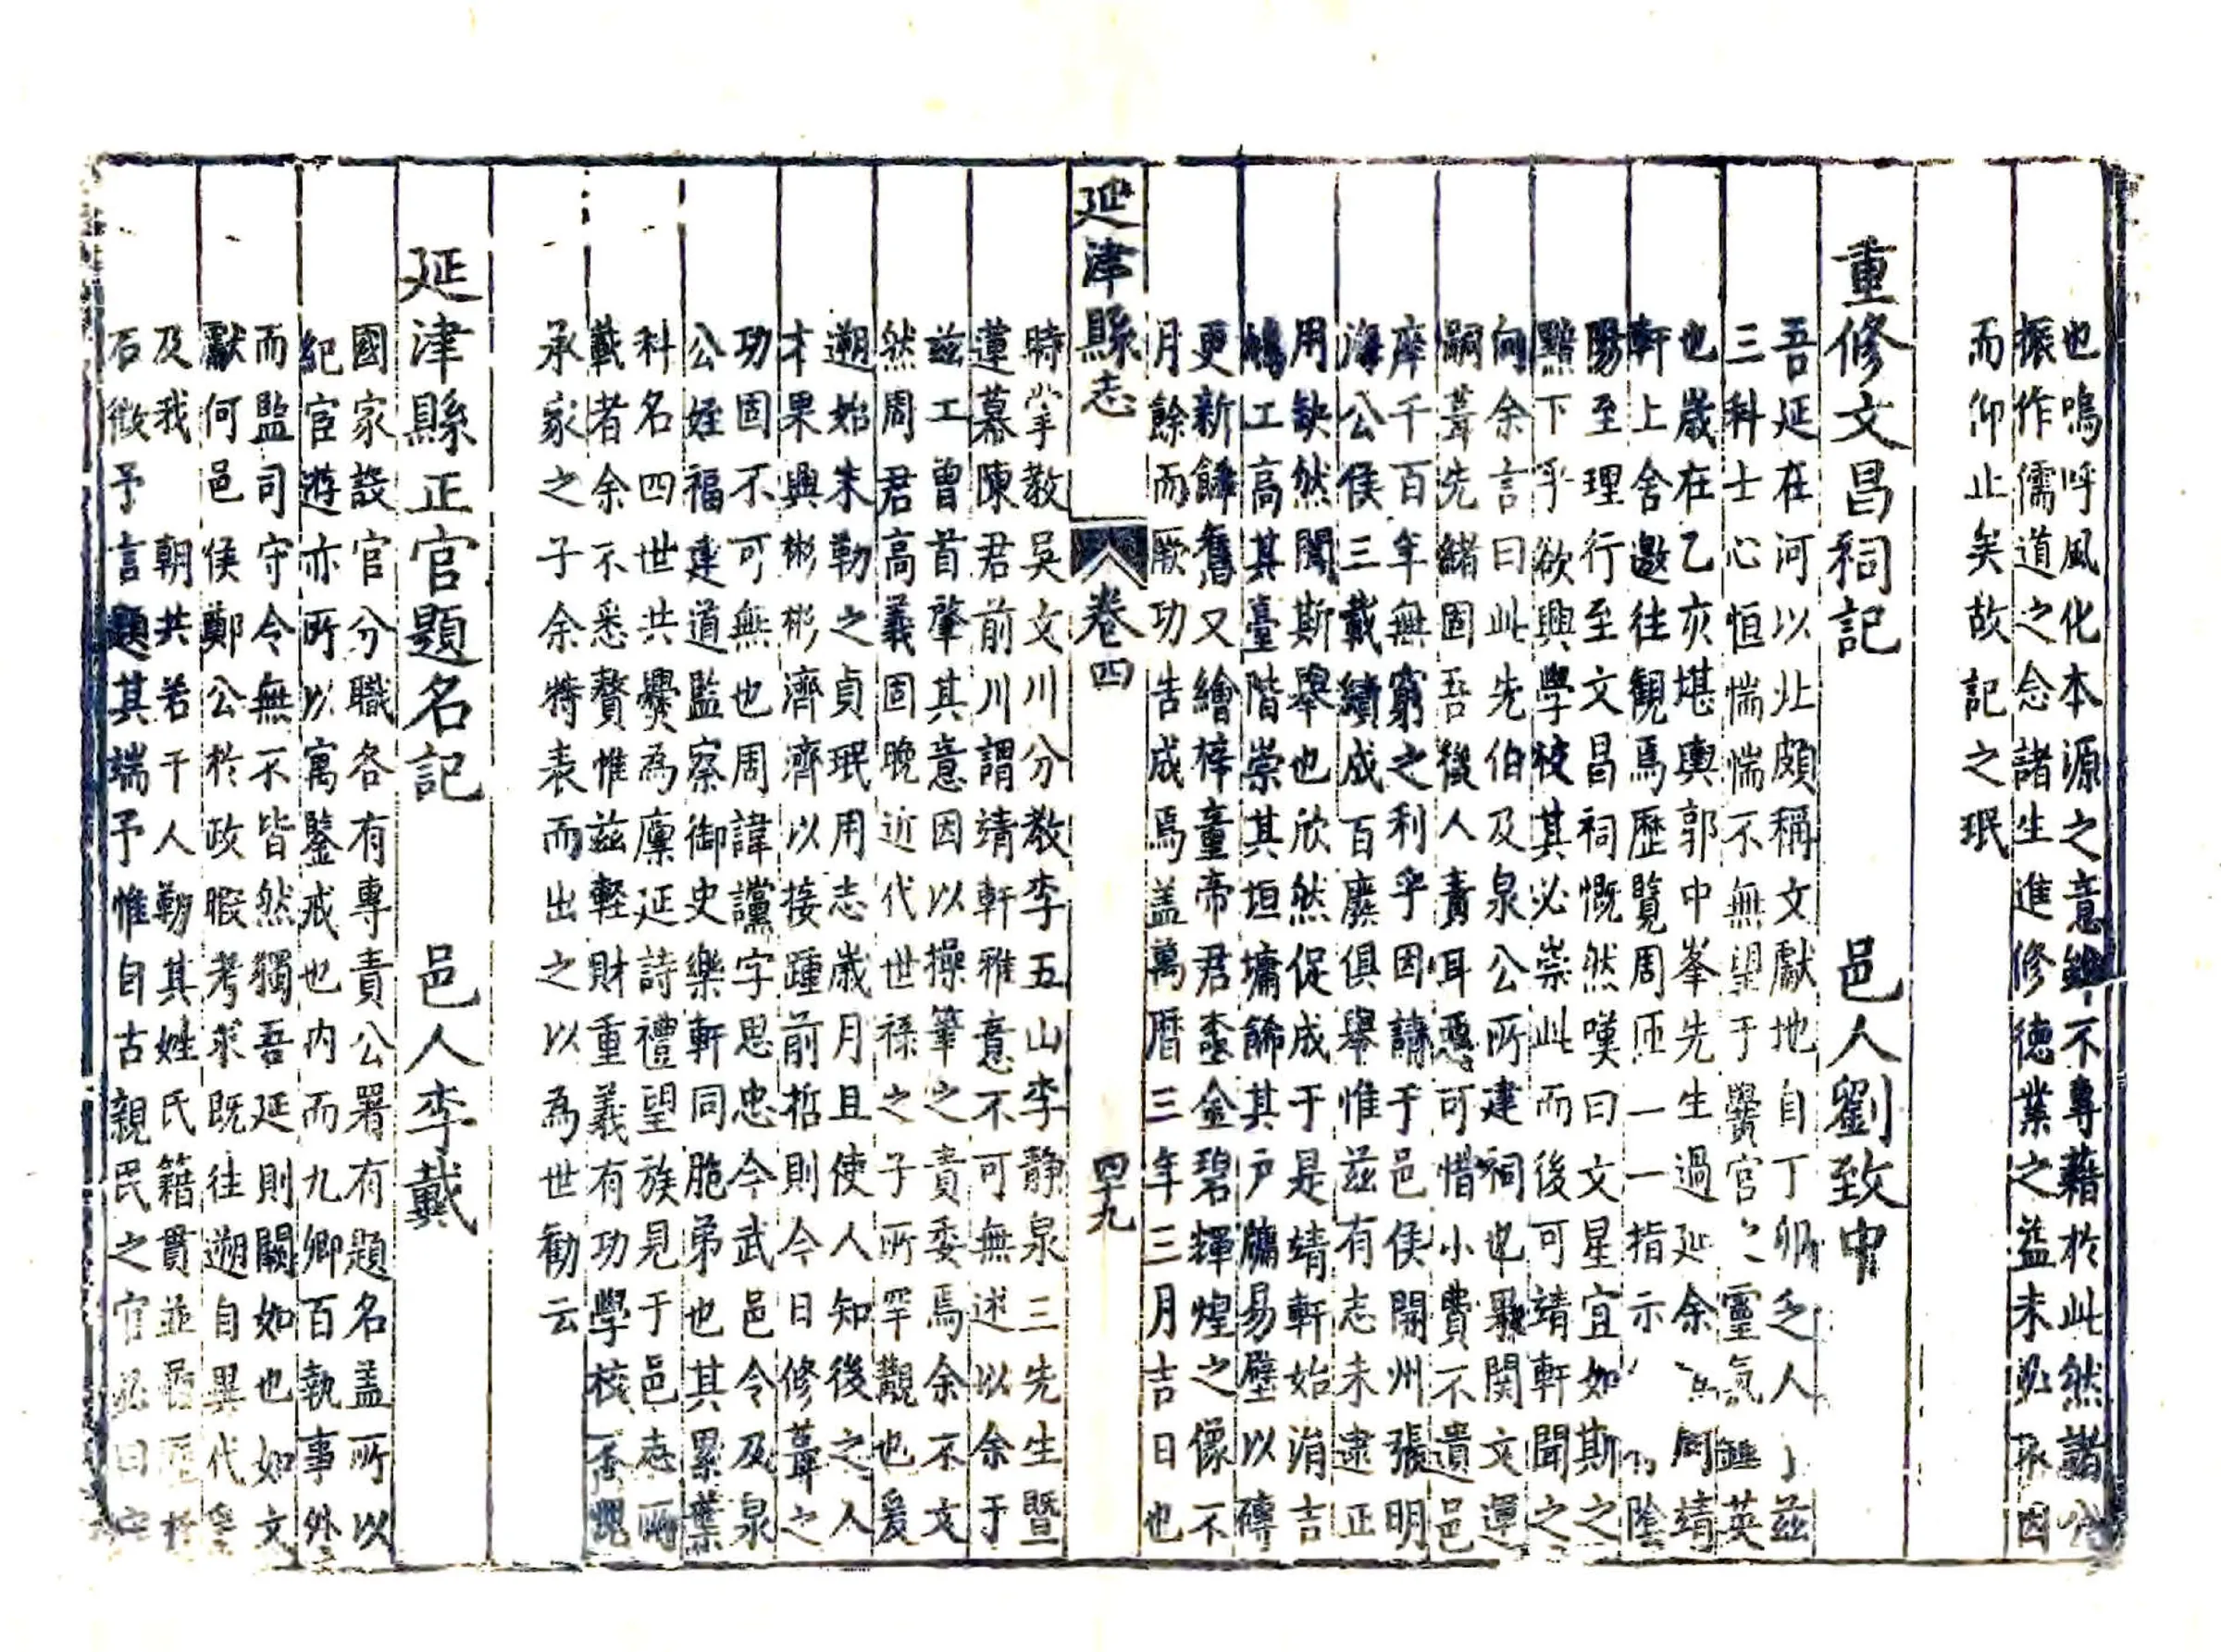 也嗚呼風化本源之意雖不專藉於此然諸公
振作儒道之念諸生進修德業之益未必不因
而仰止矣故記之珉
重修文昌祠記 邑人劉致中
吾延在河以北頗稱文獻地自丁卯乏人茲
三科士心恒惴惴不無望于黌宮之靈氣無英
也歲在乙亥堪輿郭中峯先生過延余同靖
軒上舍邀往観焉歷覽周匝一一指示陰
陽至理行至文昌祠慨然嘆曰文星宜如斯之
黯下乎欲興學校其必崇此而後可靖軒聞之
向余言曰此先伯及泉公所建祠也關文運
嗣葺先緒固吾後人責耳惡可惜小費不遺邑
庠千百年無窮之利乎因請于邑侯開州張明
海公侯三載績成百廢俱舉惟茲有志未逮正
用缺然聞斯舉也欣然促成于是靖軒始涓吉
鳩工高其臺階崇其垣墉餙其户牖易壁以磚
更新餙舊又繪梓童帝君金碧輝煌之像不
月餘而厥功告成焉盖萬曆三年三月吉日也
延津縣志 卷四 四十九
時掌教吳文川分教李五山李静泉三先生暨
蓮幕陳君前川謂靖軒雅意不可無述以余于
茲工曾首肇其意因以操筆之責委焉余不文
然周君高義固晚近代世禄之子所罕覯也爰
遡始末勒之貞珉用志歲月且使人知後之人
才果興彬彬濟濟以接踵前哲則今日修葺之
功固不可無也周諱讜字思忠今武邑令及泉
公姪福建道監察御史樂軒同胞弟也其累葉
科名四世共爨為廪延詩禮望族見于邑志所
載者余不悉贅惟茲輕財重義有功學校不愧
承家之子余特表而出之以為世勸云
延津縣正官題名記 邑人李戴
國家設官分職各有專責公署有題名盖所以
紀宦遊亦所以寓鑒戒也内而九卿百執事外
而監司守令無不皆然獨吾延則闕如也如文
獻何邑侯鄭公於政暇考求既往遡自異代
及我 朝共若干人勒其姓氏籍貫並
石徵予言題其端予惟自古親民之官必曰守